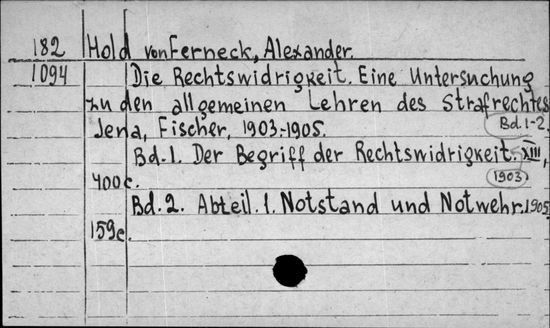 182 Hold von Ferneck, Alexander.
1094 Die Rechtswidrigkeit. Eine Untersuchung
zu den allgemeinen Lehren des Strafrechtes
Jena, Fischer, 1903-1905. Bd. 1-2.
Bd. 1. Der Begriff der Rechtswidrigkeit. XIII,
400 c. 1903
Bd. 2. Abteil. 1. Notstand und Notwehr. 1905
159 c.